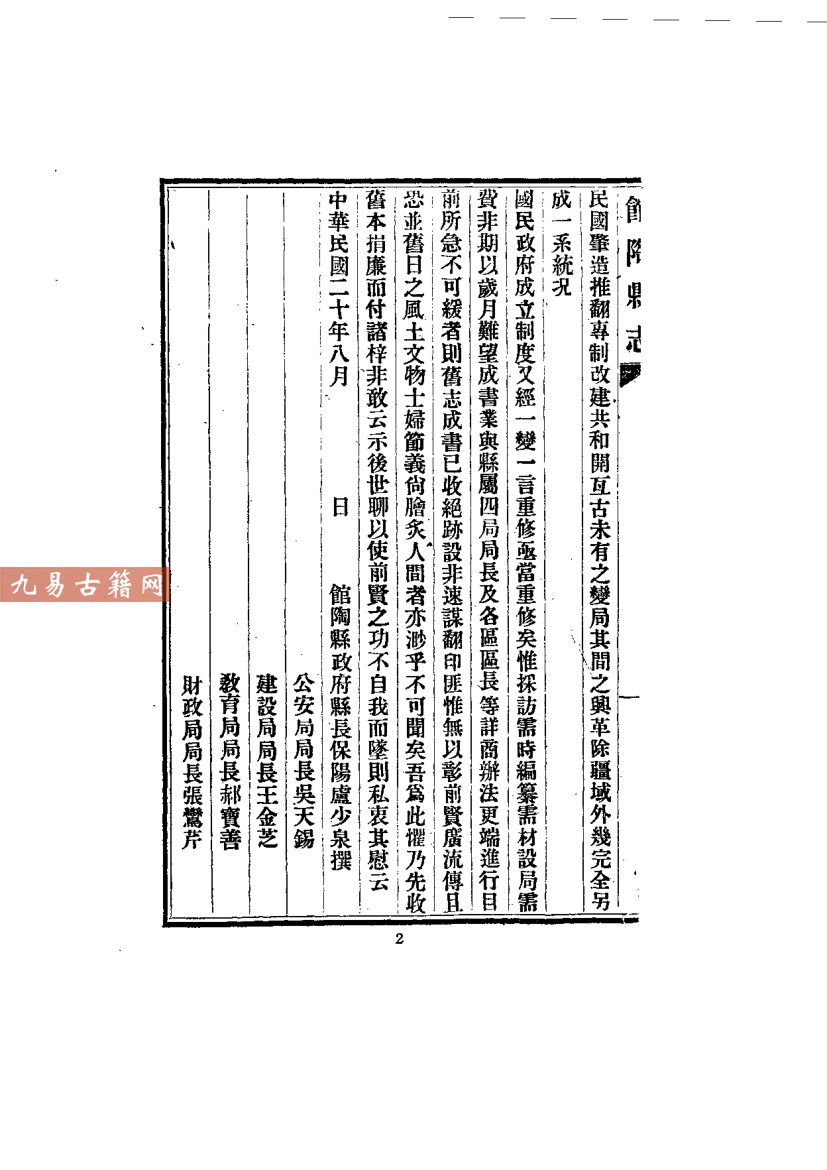 館陶縣志
民國肇造推翻專制改建共和開亙古未有之變局其間之興革除疆域外幾完全另
成一系統况
國民政府成立制度又經一變一言重修亟當重修矣惟採訪需時編纂需材設局需
費非期以歲月難望成書業與縣屬四局局長及各區區長等詳商辦法更端進行目
前所急不可緩者則舊志成書已收絕跡設非速謀翻印匪惟無以彰前賢廣流傳且
恐並舊日之風土文物士婦節義尙膾炙人間者亦渺乎不可聞矣吾爲此懼乃先收
舊本捐廉而付諸梓非敢云示後世聊以使前賢之功不自我而墜則私衷其慰云
中華民國二十年八月 日 館陶縣政府縣長保陽盧少泉撰
公安局局長吳天錫
建設局局長王金芝
敎育局局長郝寶善
財政局局長張鸞芹
一
2
九易古籍网